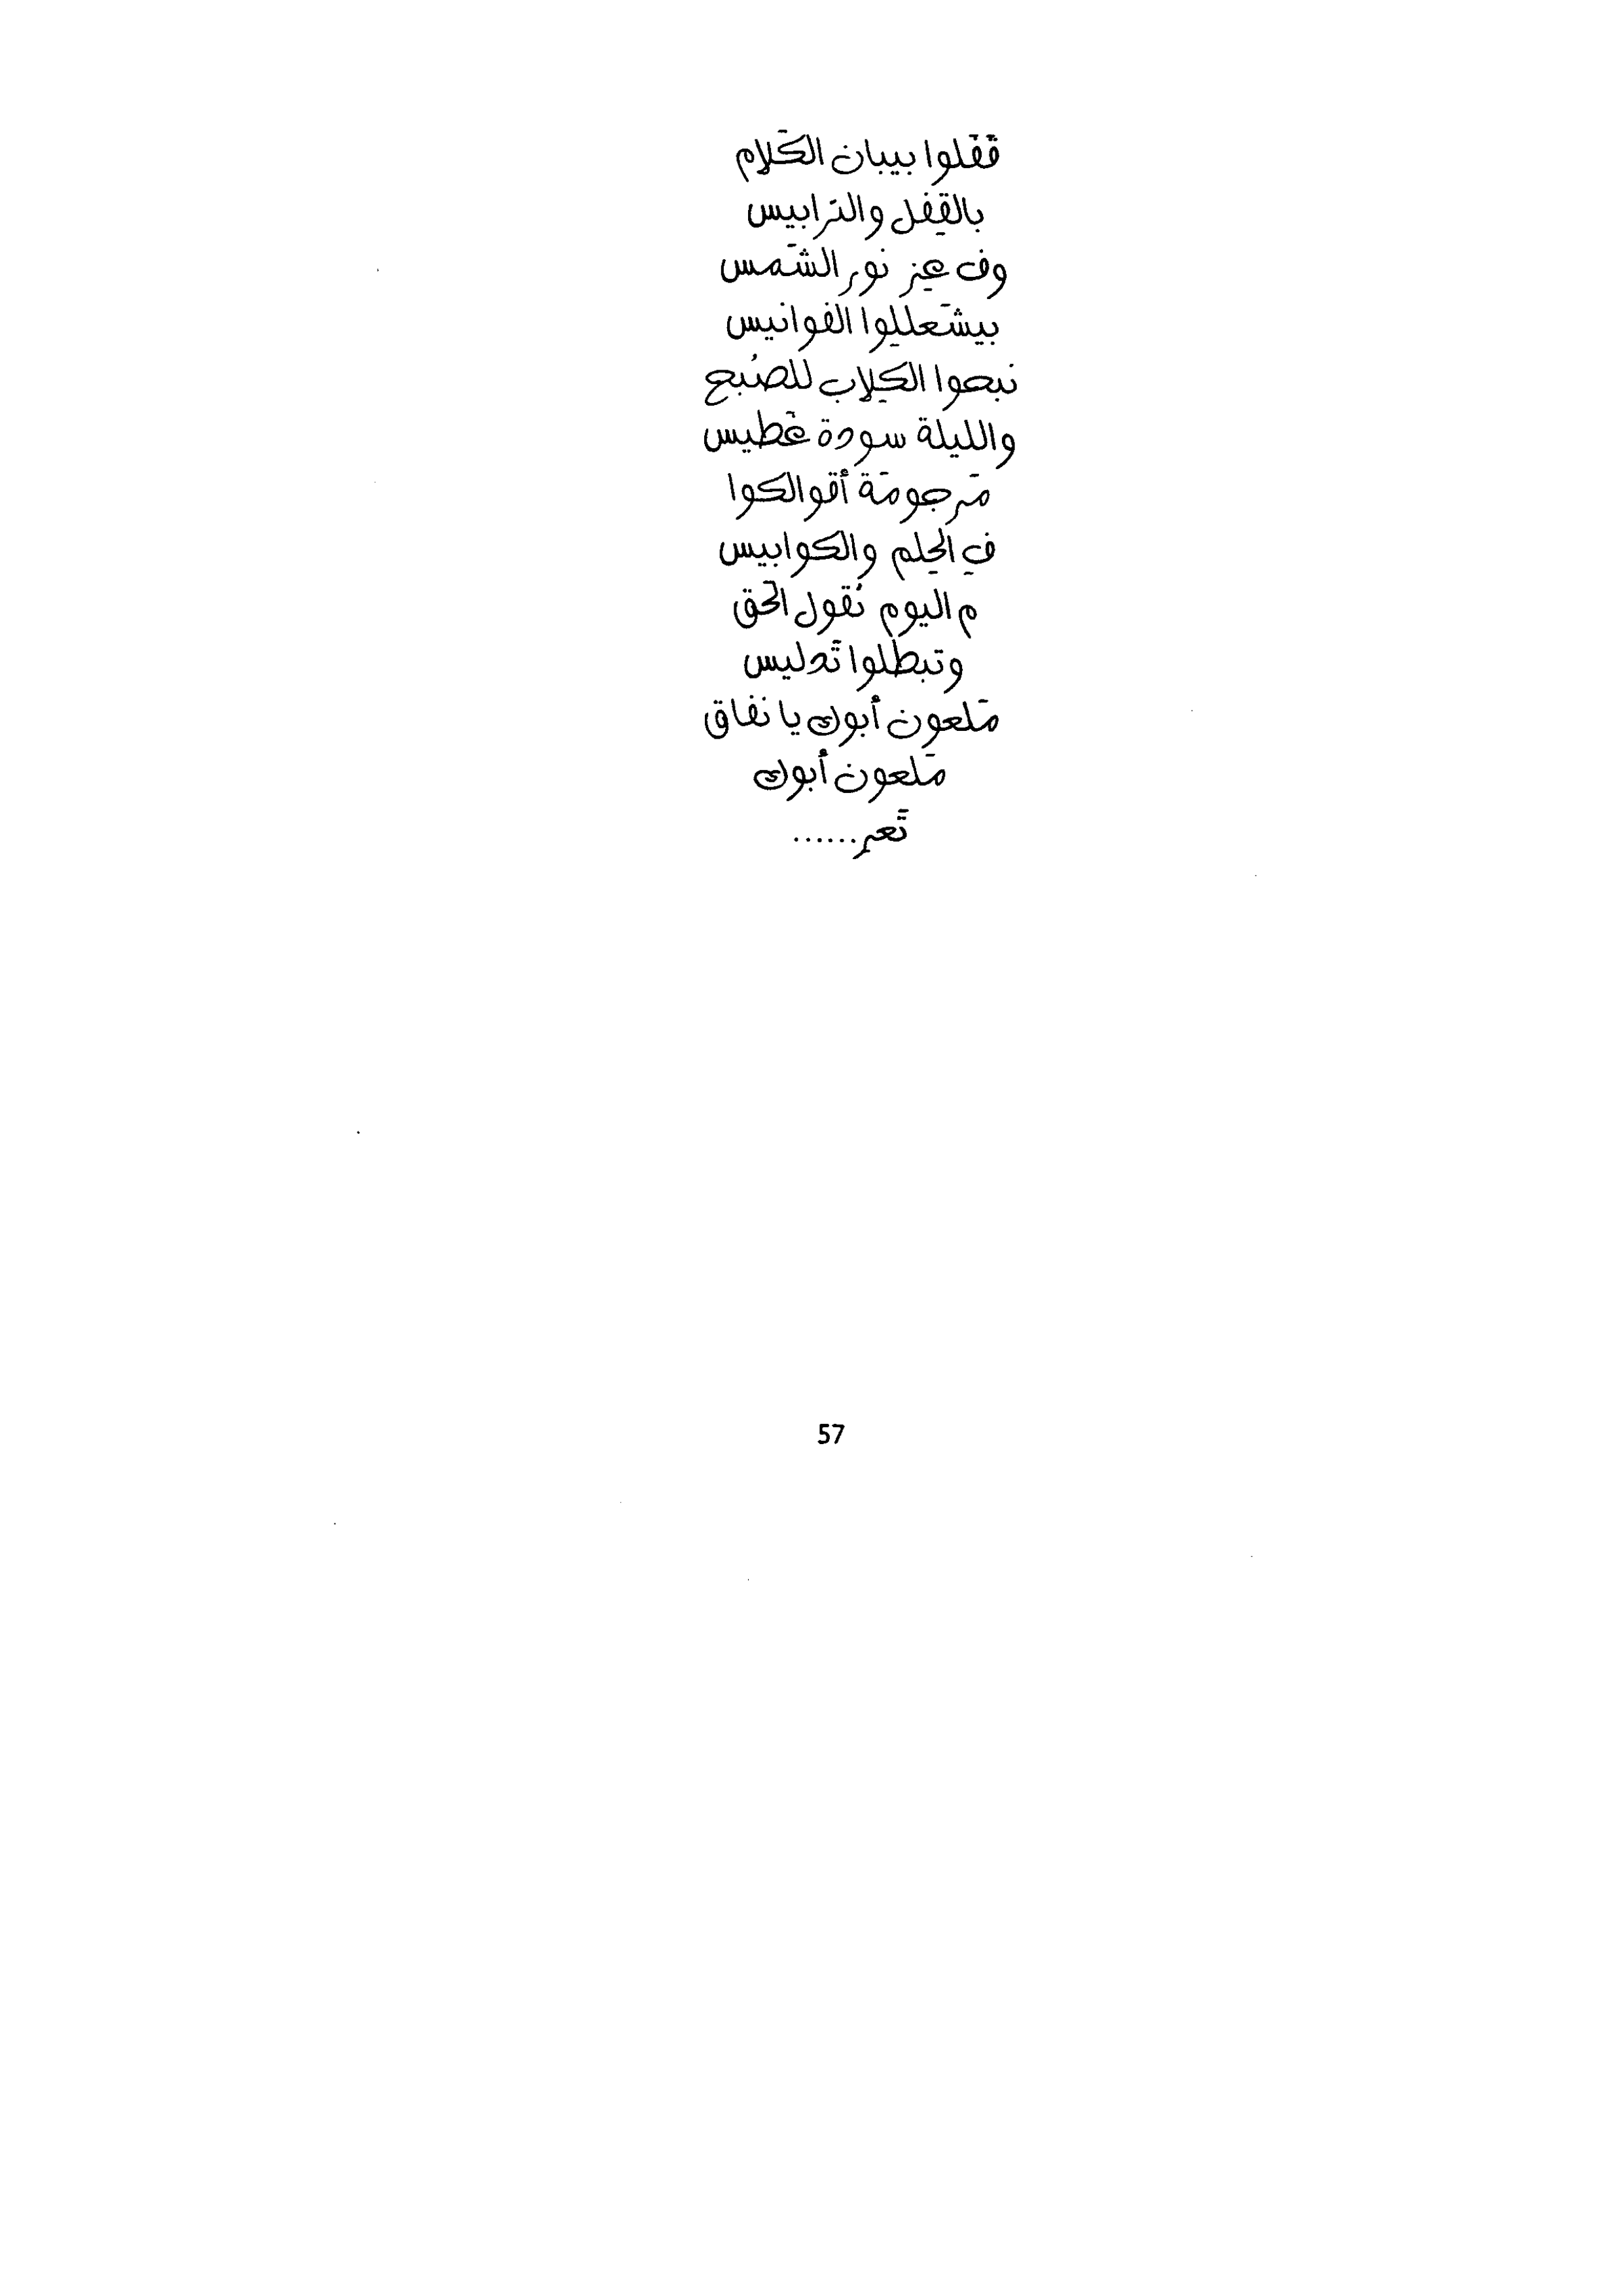 قَفَلوا بيبان الكَلام
بالقِفل والترابيس
وف عِز نور الشَمس
بيشَعللِوا الفوانيس
نبحوا الكِلاب للصُبح
والليلة سودة غَطيس
مَرجومَة أقوالكوا
في الحِلِم والكوابيس
م اليوم نُقول الحَق
وتبطَلوا تَدليس
مَلعون أبوك يا نفاق
مَلعون أبوك
تَعر......
57